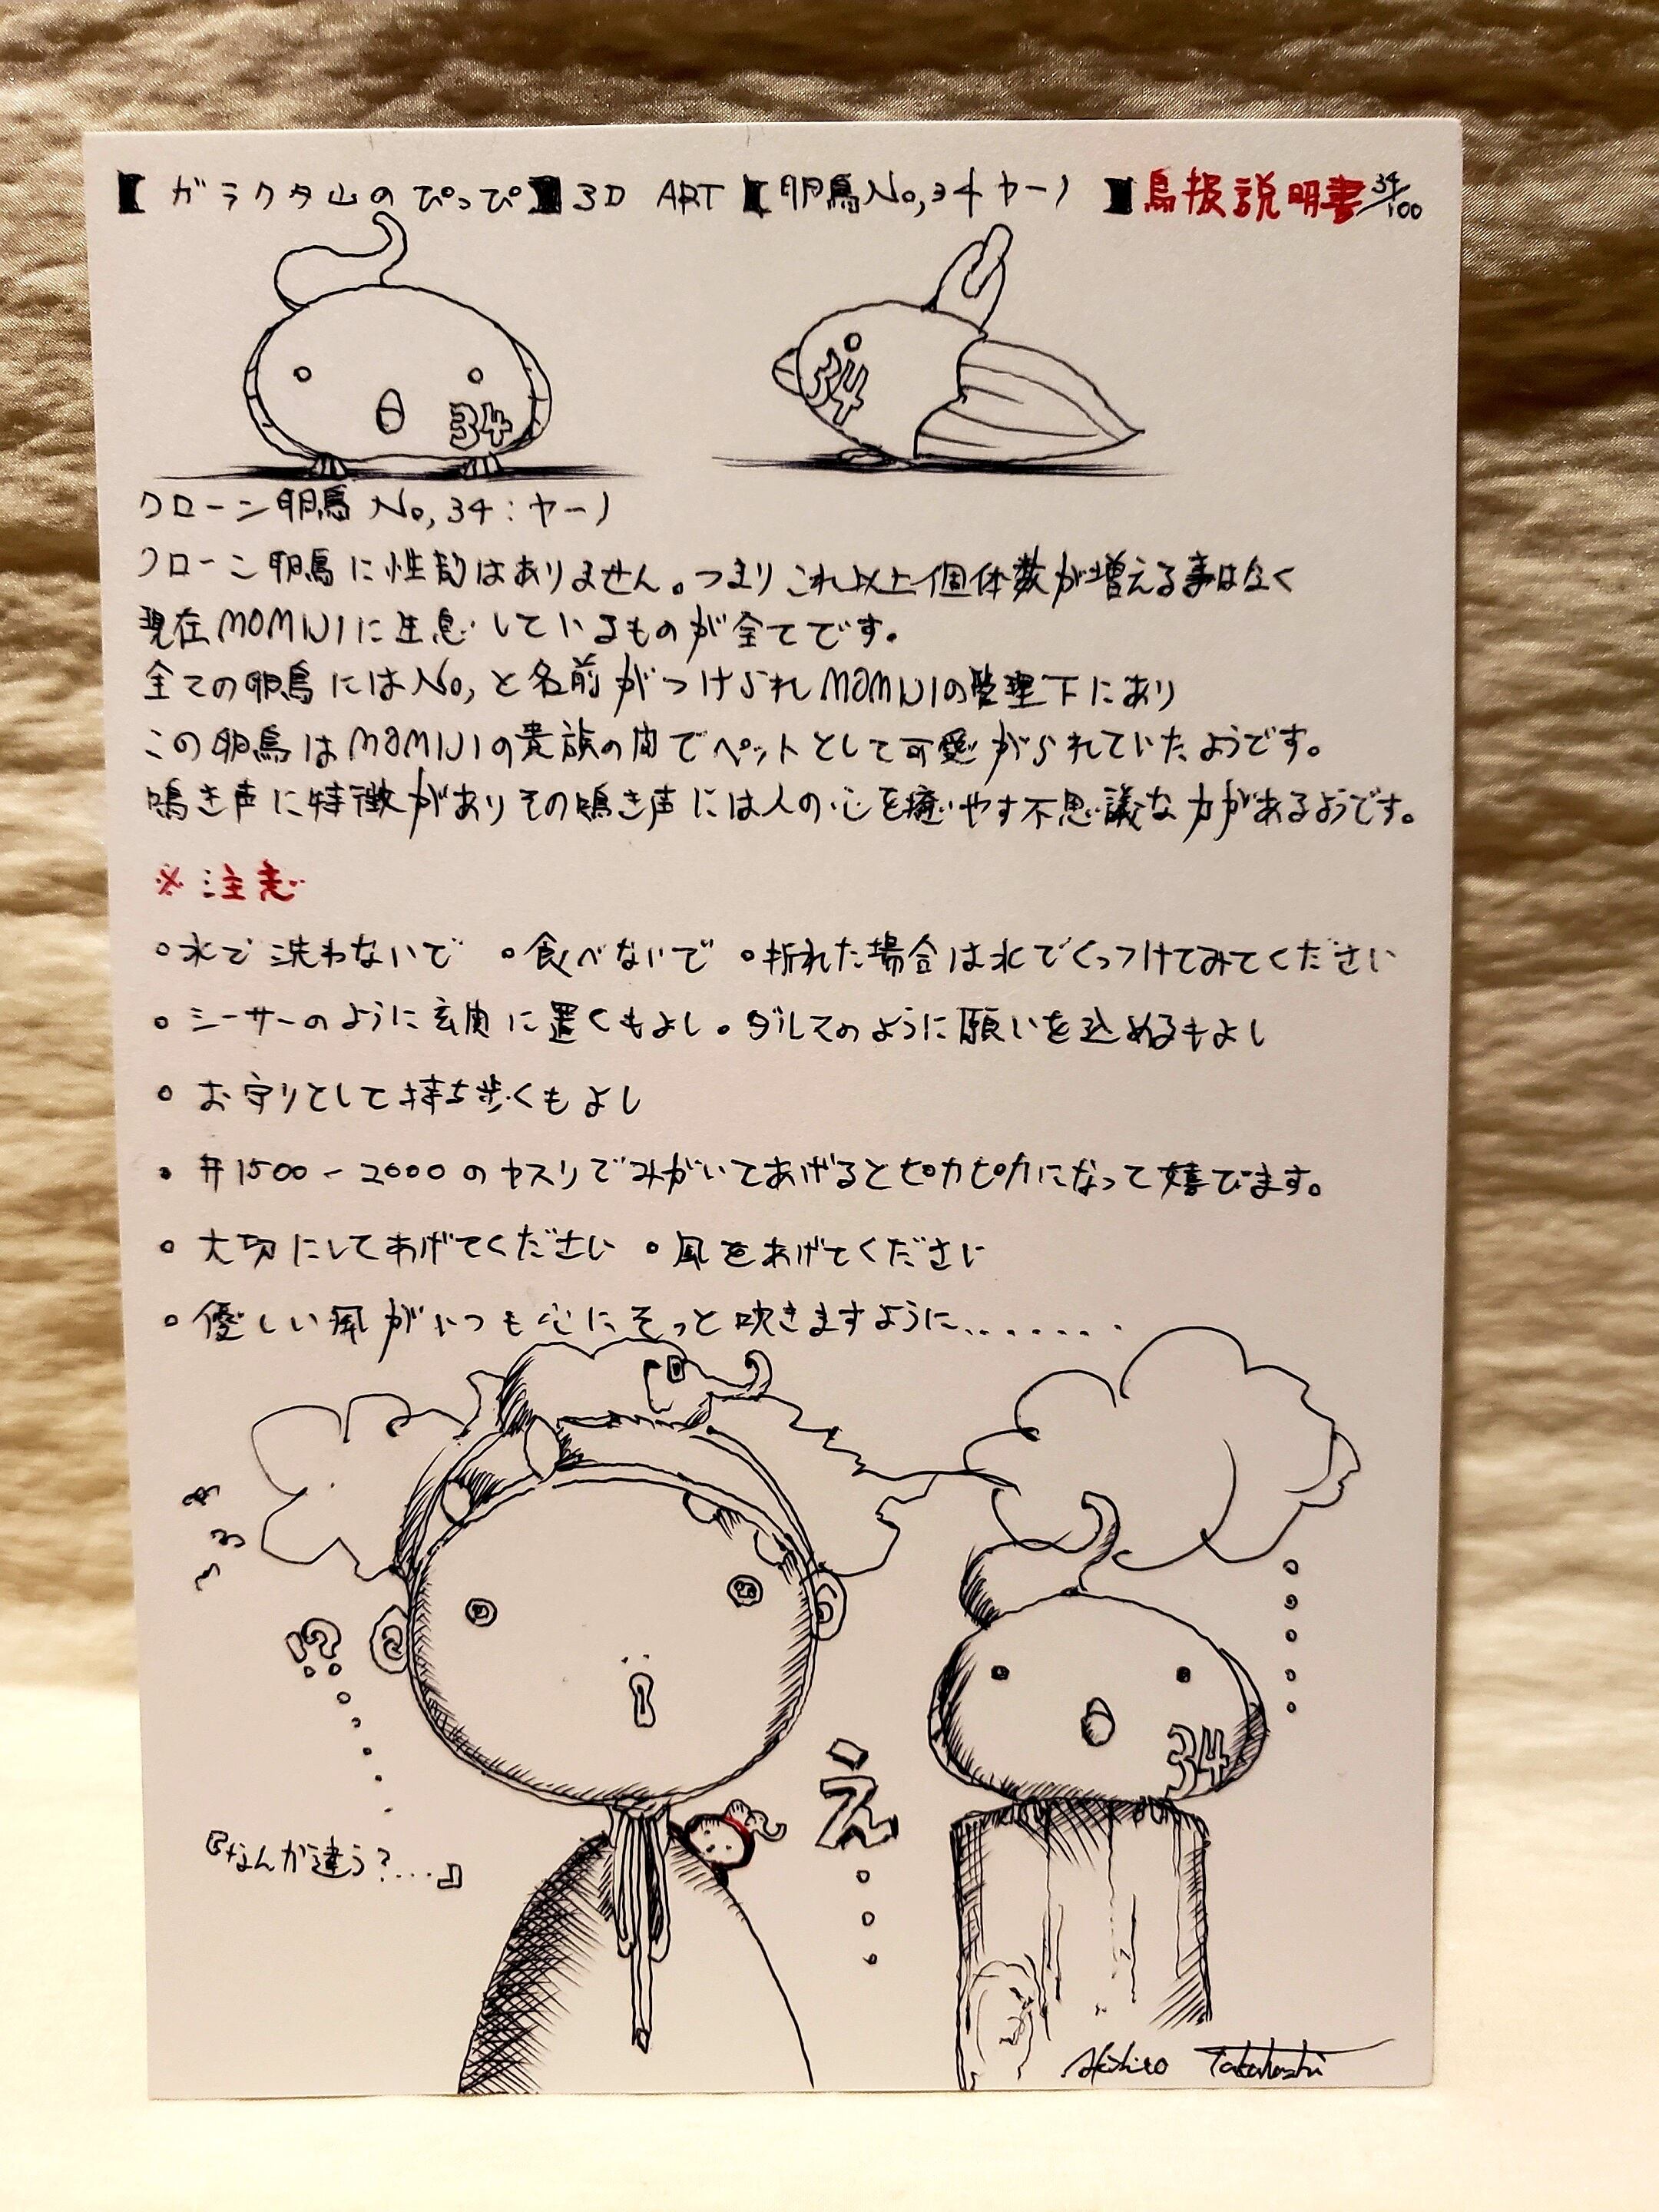 【ガラクタ山のぴっぴ】3D ART【卵鳥No,34ヤーノ】鳥扱説明書34/100
34
34
クローン卵鳥 No,34:ヤーノ
クローン卵鳥に性別はありません。つまりこれ以上個体数が増える事は全く
現在MOMIJIに生息しているものが全てです。
全ての卵鳥にはNo,と名前がつけられMOMIJIの管理下にあり
この卵鳥はMOMIJIの貴族の間でペットとして可愛がられていたようです。
鳴き声に特徴がありその鳴き声には人の心を癒やす不思議な力があるようです。
※注意
○水で洗わないで ○食べないで ○折れた場合は水でくっつけてみてください
○シーサーのように玄関に置くもよし○ダルマのように願いを込めるもよし
○お守りとして持ち歩くもよし
○#1500-2000のヤスリでみがいてあげるとピカピカになって嬉びます。
○大切にしてあげてください ○風をあげてください
○優しい風がいつも心にそっと吹きますように.......
!?
34
え
『なんか違う?...』
Akihiro Takahashi